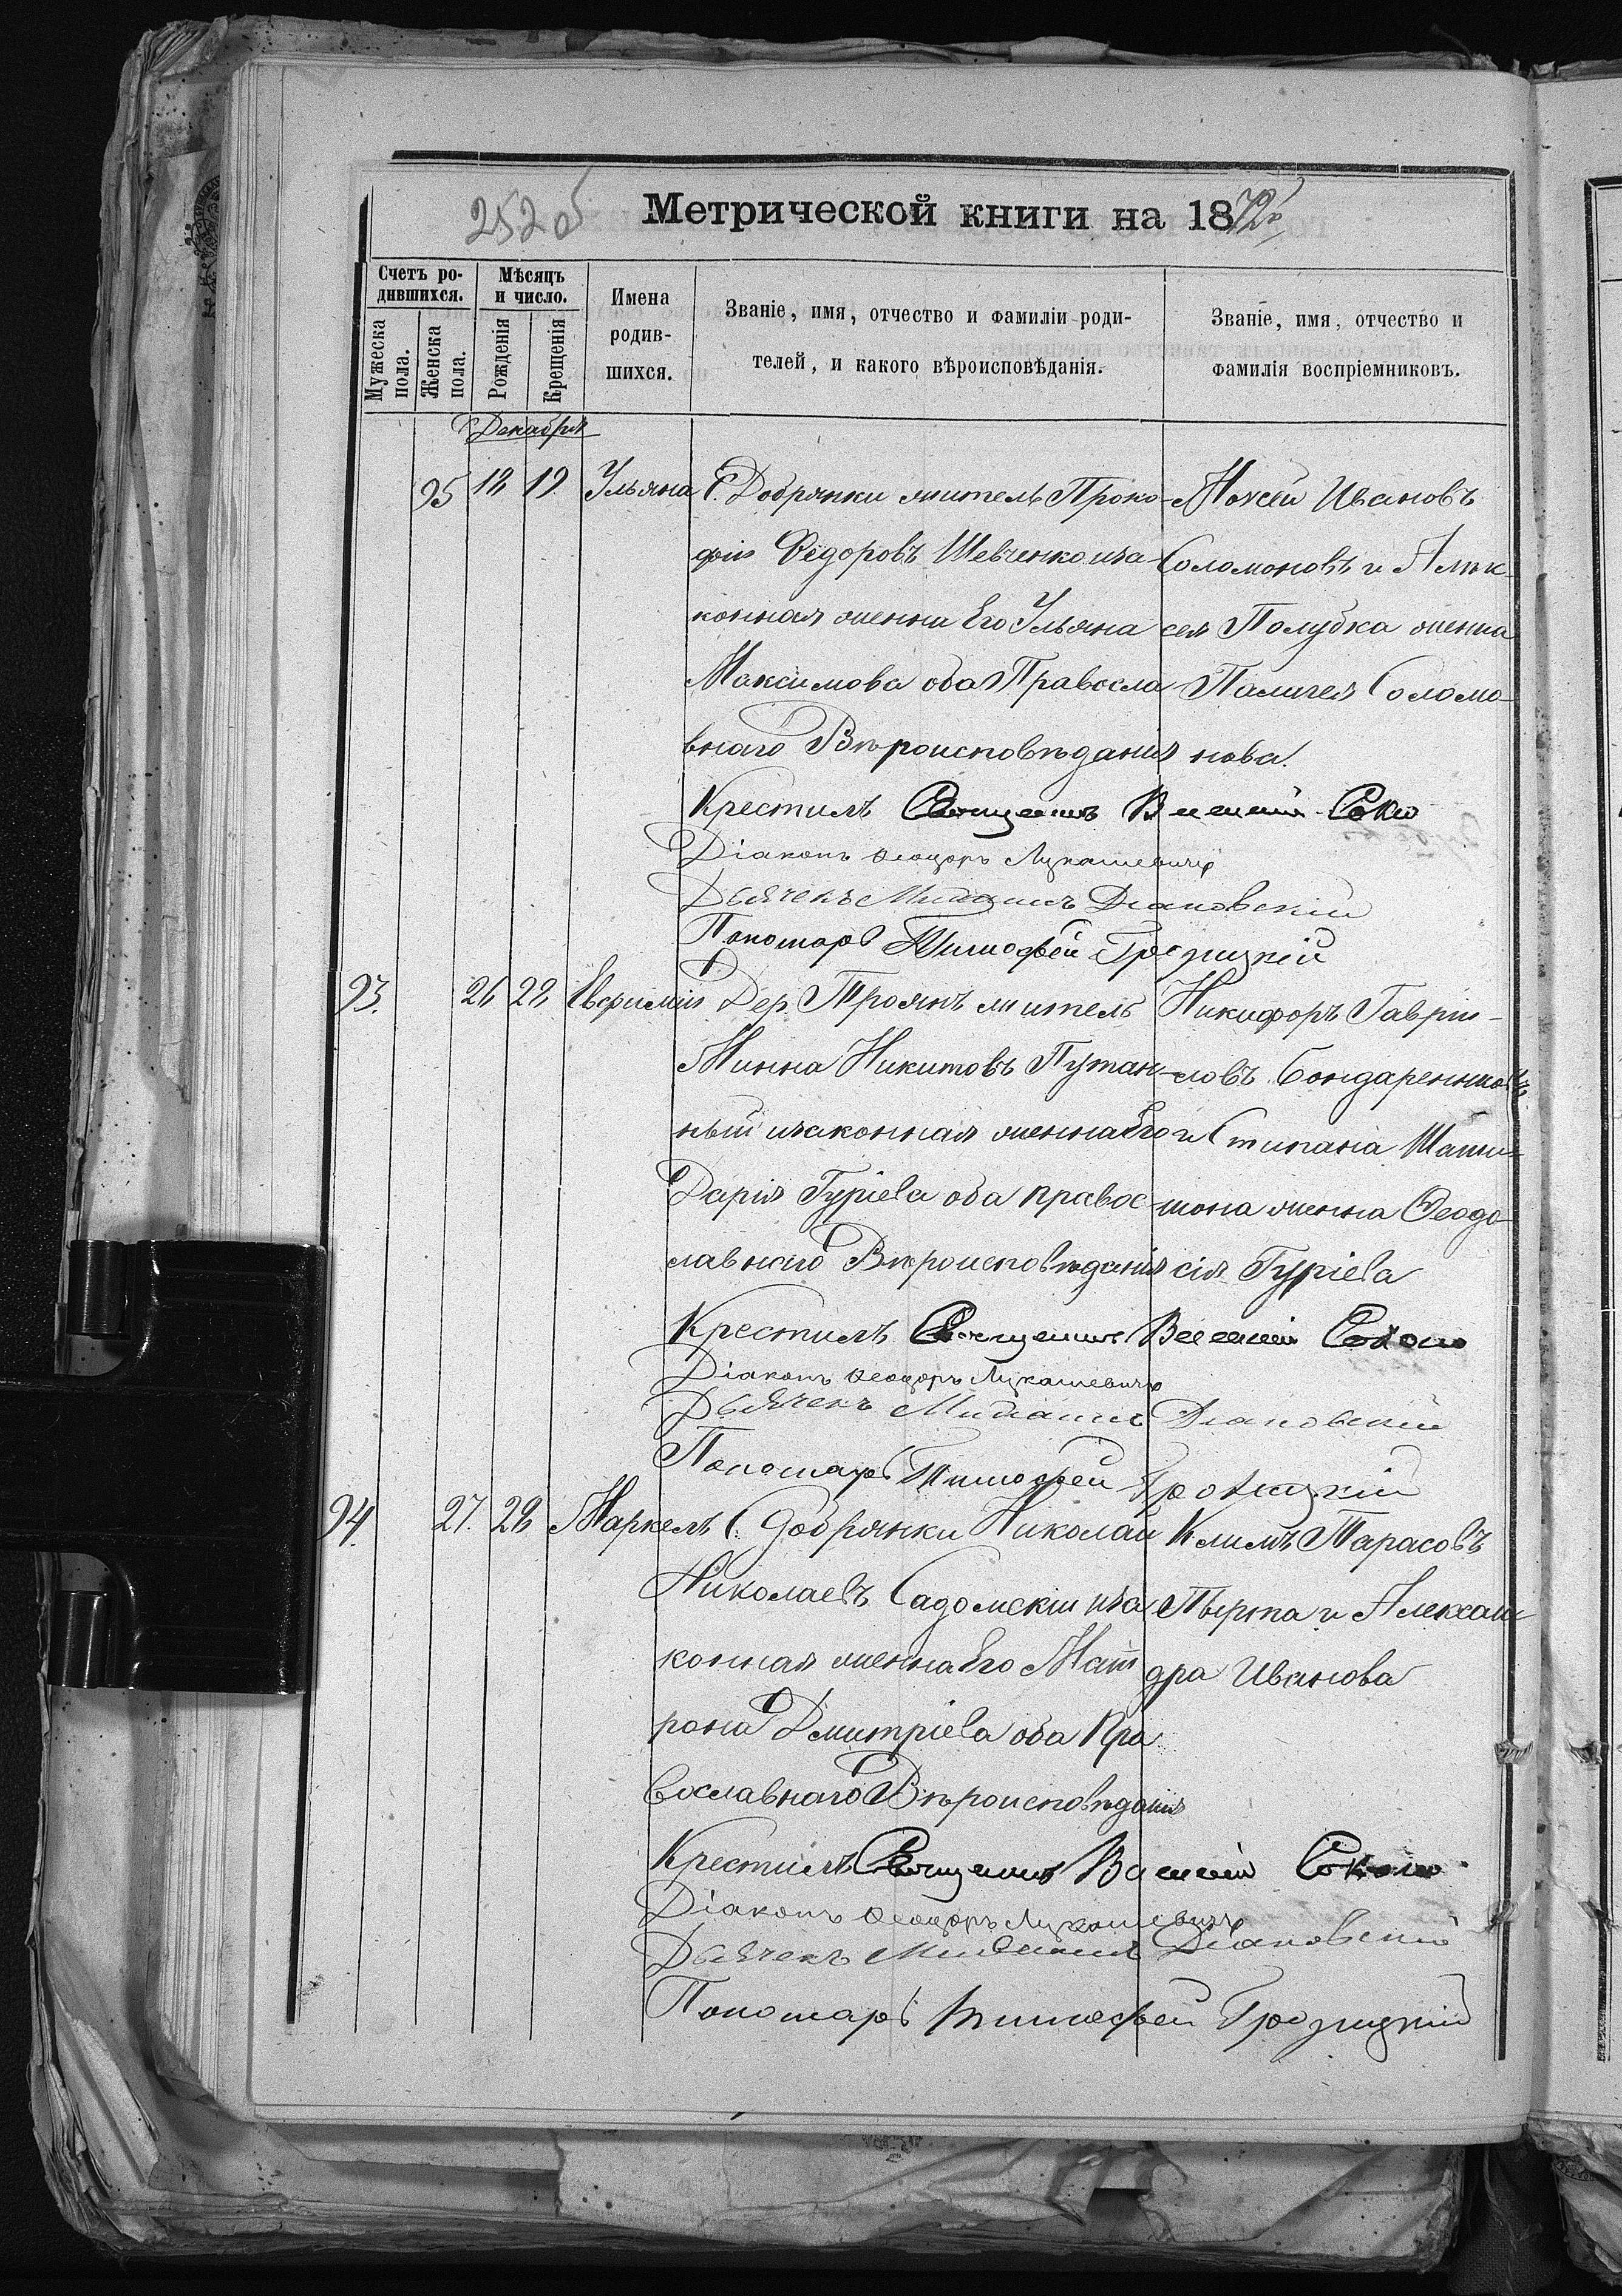 252 об
Метрической книги на 1872 г.
Счетъ родившихся.
Мужеска пола.
Женска пола.
Мѣсяцъ и число.
Рожденія
Крещенія
Имена родившихся.
Званіе, имя, отчество и фамиліи роди-
телей, и какого вѣроисповѣданія.
Званіе, имя, отчество и
фамилія воспріемниковъ.
Декабря
95 18 19 Ульяна С. Добрянки житель Проко-
фій Федоровъ Шевченко иза-
конная женна Его Ульяна
Максимова оба Правосла
внаго Вѣроисповѣданія
Моисей Ивановъ
Соломоновъ и Алек-
сея Полубка женна
Палагея Соломо-
нова.
Крестилъ Священникъ Василій
Діаконъ Феодоръ Лукашевичъ
Дьячекъ Михаилъ Діановскій
Пономарь Тимофей Грозицкій
93. 26 28 Евфимій Дер. Троянъ житель
Минна Никитовъ Путан-
ный изаконная женна Его
Дарія Гуріева оба правос-
лавнаго Вѣроисповѣданія
Никифоръ Гаврі-
ловъ Бондаренковъ
и Стипана
женна Феодо-
сія Гуріева
Крестилъ Священникъ Василій
Діаконъ Феодоръ Лукашевичъ
Дьячекъ Михаилъ Діановскій
Пономарь Тимофей Грозицкій
94. 27. 28 Маркелъ С. Добрянки Николай
Николаевъ Садомскій иза
конная женна Его Мат
рона Дмитріева оба Пра
вославнаго Вѣроисповѣданія
Климъ Тарасовъ
Пырпа и Александ
дра Иванова
Крестилъ Священникъ Василій
Діаконъ Феодоръ Лукашевичъ
Дьячекъ Михаилъ Діановскій
Пономарь Тимофей Грозицкій